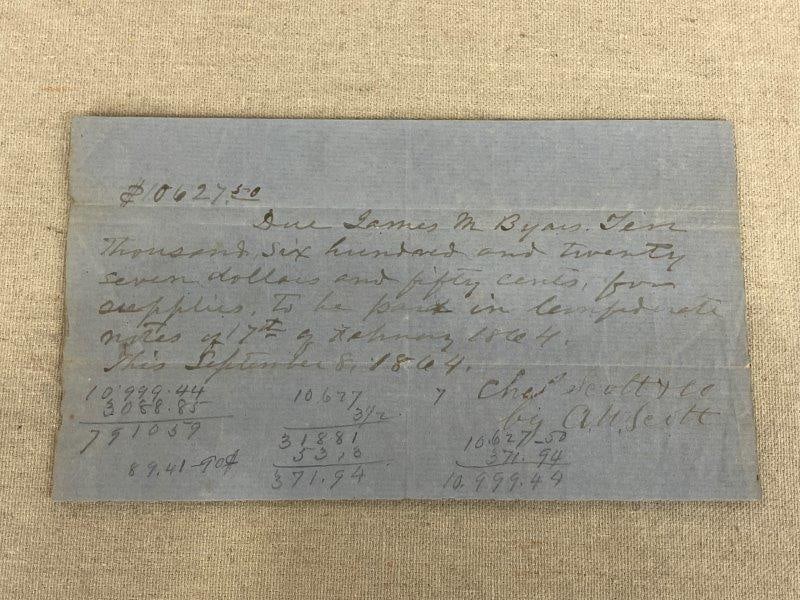 $10627.50
Due James M Byars. Ten
Thousand, Six hundred and twenty
seven dollars and fifty cents, for
supplies, To be paid in Confederate
notes of 17th of February 1864.
This September 8, 1864.
Chas Scott & Co
by A. H. Scott
10.999.44
3088.85
791059
89.41-90¢
10627
3 1/2
31881
531 3
371.94
7
10627-50
371.94
10.999.44